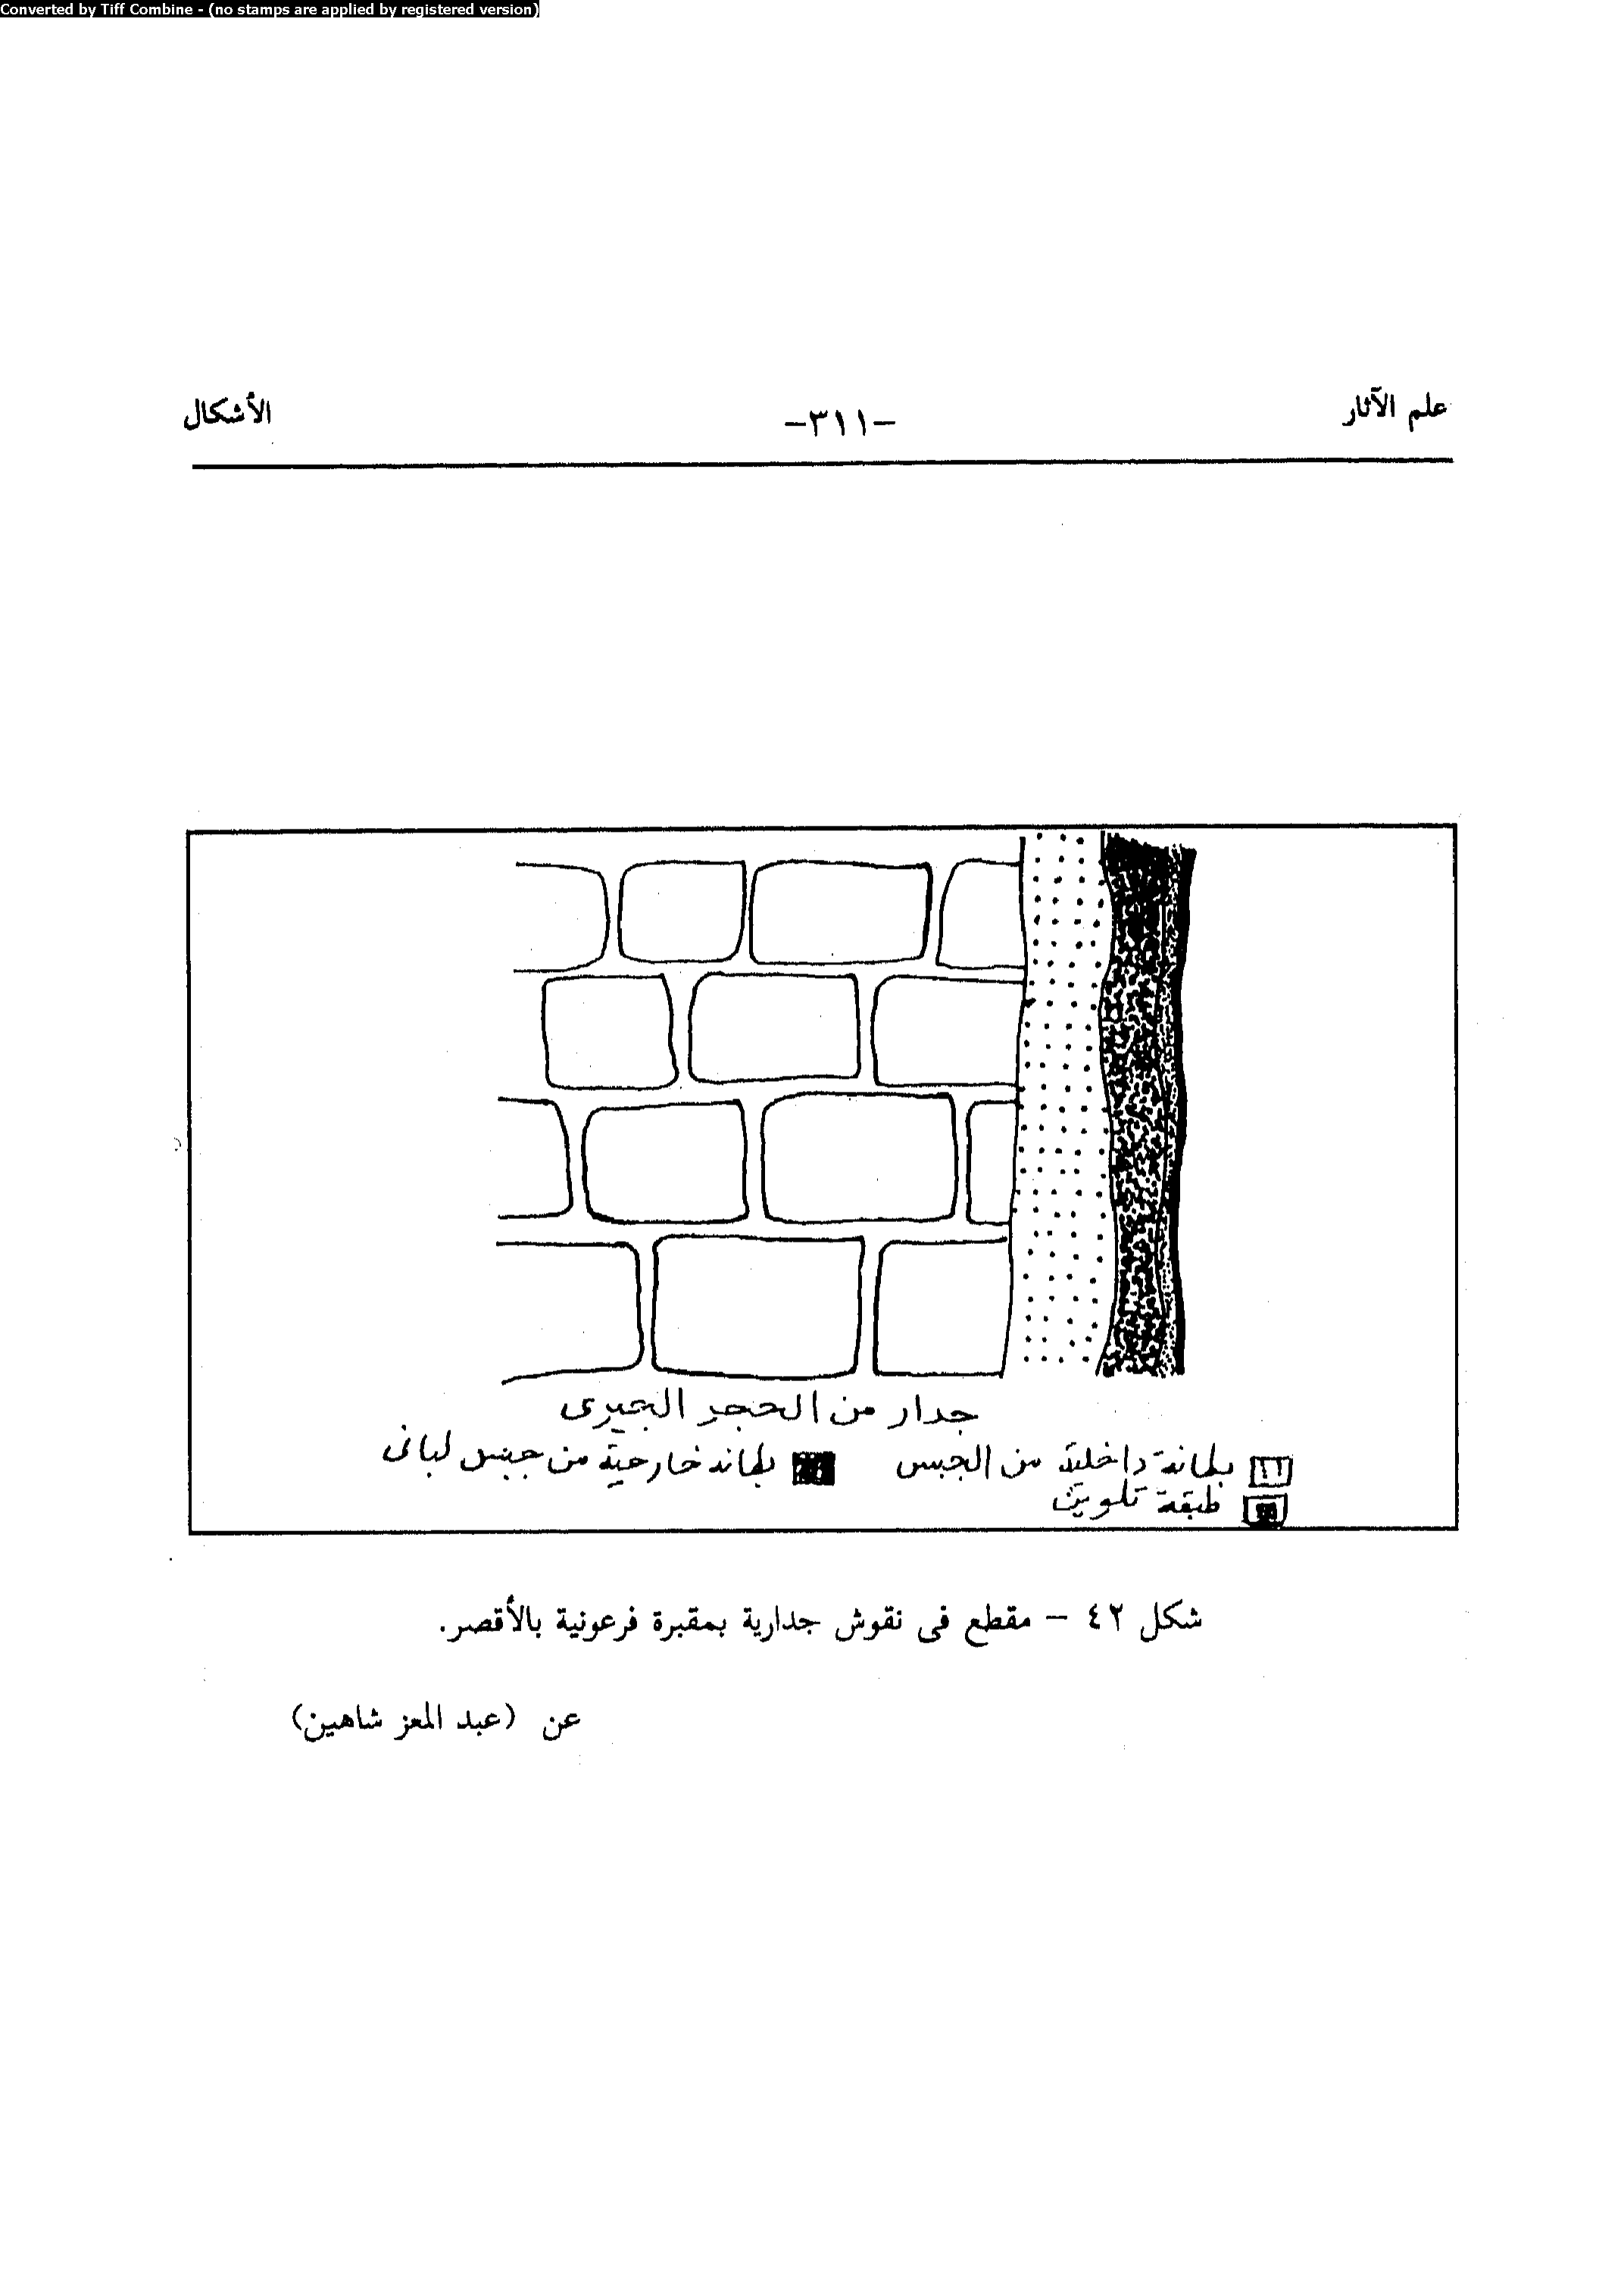 Converted by Tiff Combine - (no stamps are applied by registered version)
علم الآثار -٣١١- الأشكال
جدار من الحجر الجيرى
بطانة داخلية من الجبس بطانه خارجية من جبس لبانى
طبقة تلوين
شكل ٤٢ – مقطع فى نقوش جدارية بمقبرة فرعونية بالأقصر.
عن (عبد المعز شاهين)